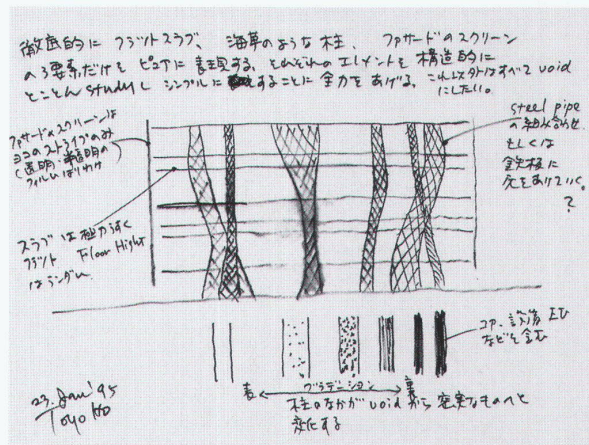 徹底的に フラットスラブ、 海草のような柱、 ファサードのスクリーン
の3要素だけを ピュアに表現する。それぞれのエレメントを 構造的に
とことん studyし シンプルに することに 全力をあげる。これ以外はすべて void
にしたい。
ファサードのスクリーンは
ヨコのストライプのみ
(透明・半透明の
フィルムばりわけ
スラブは極力うすく
フラット Floor Hight
はランダム
steel pipe
の組み合わせ
もしくは
鉄板に
穴をあけていく。
?
コア、設備 EV
などを含む
表 グラデーション 裏
柱のなかが void から 密実なものへと
変化する
23. Jan '95
Toyo Ito